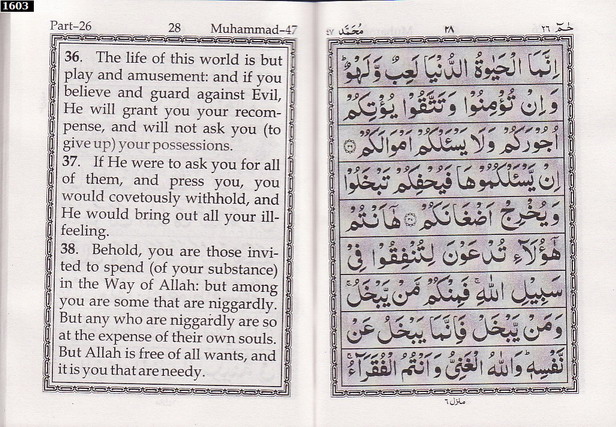 1603
Part-26 28 Muhammad-47
36. The life of this world is but
play and amusement: and if you
believe and guard against Evil,
He will grant you your recom-
pense, and will not ask you (to
give up) your possessions.
37. If He were to ask you for all
of them, and press you, you
would covetously withhold, and
He would bring out all your ill-
feeling.
38. Behold, you are those invi-
ted to spend (of your substance)
in the Way of Allah: but among
you are some that are niggardly.
But any who are niggardly are so
at the expense of their own souls.
But Allah is free of all wants, and
it is you that are needy.
حٰمٓ ٢٦ ٢٨ مُحَمَّد ٤٧
اِنَّمَا الْحَيٰوةُ الدُّنْيَا لَعِبٌ وَّلَهْوٌ
وَاِنْ تُؤْمِنُوْا وَتَتَّقُوْا يُؤْتِكُمْ
اُجُوْرَكُمْ وَلَا يَسْـَٔلْكُمْ اَمْوَالَكُمْ ﴿٣٦﴾
اِنْ يَّسْـَٔلْكُمُوْهَا فَيُحْفِكُمْ تَبْخَلُوْا
وَيُخْرِجْ اَضْغَانَكُمْ ﴿٣٧﴾ هٰٓاَنْتُمْ
هٰٓؤُلَآءِ تُدْعَوْنَ لِتُنْفِقُوْا فِيْ
سَبِيْلِ اللّٰهِ ۚ فَمِنْكُمْ مَّنْ يَّبْخَلُ ۚ
وَمَنْ يَّبْخَلْ فَاِنَّمَا يَبْخَلُ عَنْ
نَّفْسِهٖ ؕ وَاللّٰهُ الْغَنِيُّ وَاَنْتُمُ الْفُقَرَآءُ ۚ
منزل ٦